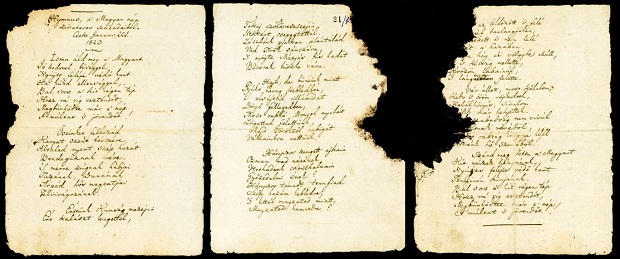 Hymnus, a' Magyar nép
zivataros századaiból.
Cseke Januar. 22d.
1823
Isten áldd meg a' Magyart
Jó kedvvel, bőséggel,
Nyújts feléje védő kart
Ha küzd ellenséggel;
Bal sors a' kit régen tép
Hozz rá víg esztendőt,
Megbűnhődte már e' nép
A' multat 's jövendőt!
Őseinket felhozád
Kárpát szent bérczére
Általad nyert szép hazát
Bendegúznak vére.
'S merre zúgnak habjai
Tiszának, Dunának,
Árpád hős magzatjai
Felvirágozának.
Értünk Kunság mezein
Ért kalászt lengettél,
21/
Tokaj szőlővesszein
Nektárt csepegtettél.
Zászlónk gyakran plántálád
Vad Török sánczára,
'S nyögte Mátyás bús hadát
Bécsnek büszke vára.
Hajh, de bűneink miatt
Gyúlt harag kebledben,
'S elsújtád villámidat
Dörgő fellegedben,
Most rabló Mongol nyilát
Zúgattad felettünk,
Majd Töröktől rabigát
Vállainkra vettünk.
Hányszor zengett ajkain
Ozman vad népének
Vert hadunk csonthalmain
Győzedelmi ének!
Hányszor támadt tenfiad
Szép hazám kebledre,
'S lettél magzatod miatt
Magzatod hamvedre?
üldözött 's felé
barlangjában,
nem lelé
a' hazában,
völgybe száll,
mellette,
Vérözön lábainál,
'S lángtenger felette.
Vár állott, most kőhalom;
Kedv 's öröm röpkedtek,
Halálhörgés, siralom
Zajlik már helyett
nem virúl
véréből,
rabság könnye hull
hő szeméből.
Szánd meg Isten a' Magyart
Kit vészek hányának,
Nyújts feléje védő kart
Tengerén kínjának.
Bal sors a' kit régen tép
Hozz rá víg esztendőt,
Megbűnhődte már e' nép
A' multat 's jövendőt!